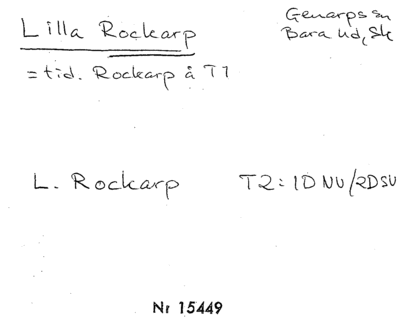 Lilla Rockarp
Genarps sn
Bara hd, Sk
= tid. Rockarp å T1
L. Rockarp T2: 1D NV/2D SV
Nr 15449